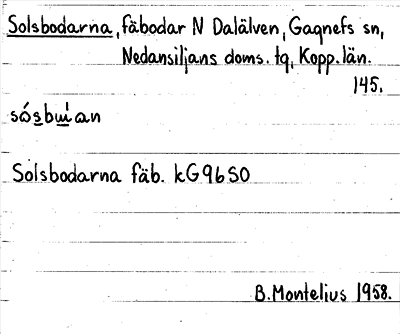 Solsbodarna, fäbodar N Dalälven, Gagnefs sn,
Nedansiljans doms. tg, Kopp. län.
145.
Solsbodarna fäb. kG9650
B. Montelius 1958.